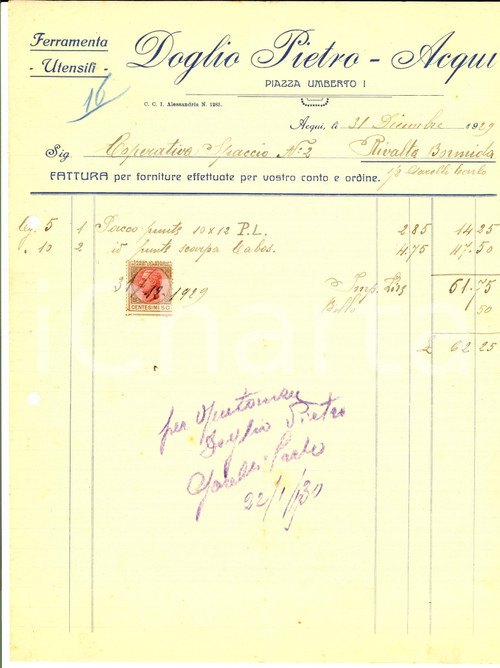 Ferramenta
- Utensili -
Doglio Pietro - Acqui
PIAZZA UMBERTO I
16
C. C. I. Alessandria N. 1281.
Acqui, li 31 Dicembre 1929
Sig. Coperativa Spaccio N° 2 Rivalta Bormida
FATTURA per forniture effettuate per vostro conto e ordine.
5 1 Pacco punte 10 x 12 P.L. 2.85 14.25
10 2 id punte scarpa 4.75 47.50
31 12 1929
CENTESIMI 50
Imp. Lire 61.75
Bollo 50
£ 62.25
iCharta
per
Doglio Pietro
22/1/30